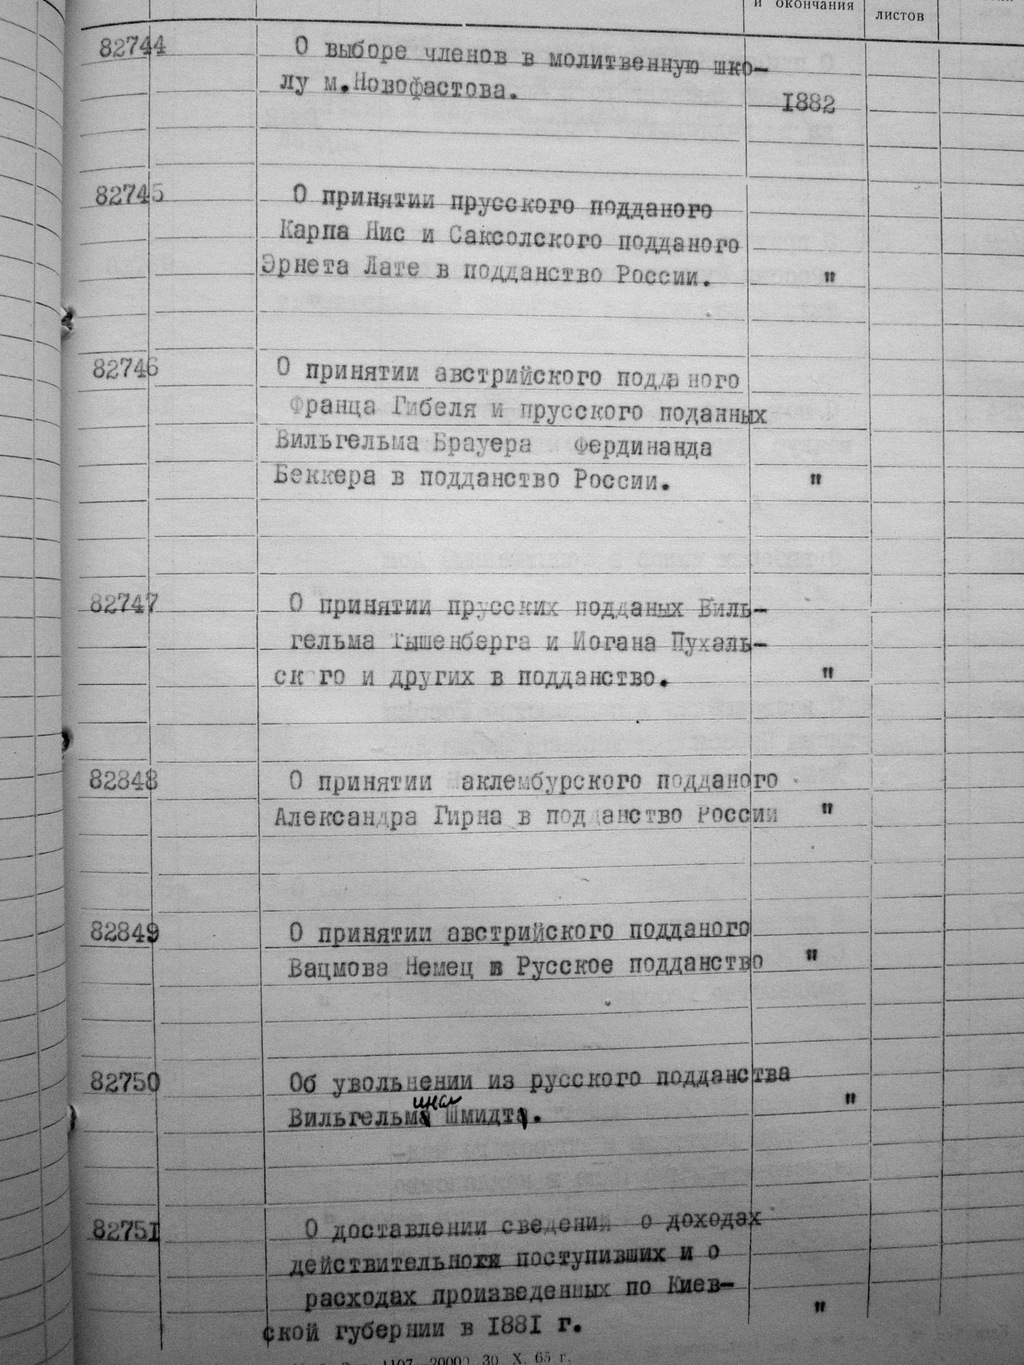 и окончания
листов
82744 О выборе членов в молитвенную шко-
лу м.Новофастова.
1882
82745 О принятии прусского подданого
Карпа Нис и Саксолского подданого
Эрнета Лате в подданство России. "
82746 О принятии австрийского подданого
Франца Гибеля и прусского поданных
Вильгельма Брауера Фердинанда
Беккера в подданство России. "
82747 О принятии прусских подданых Виль-
гельма Тышенберга и Иогана Пухаль-
ск го и других в подданство. "
82848 О принятии аклембурского подданого
Александра Гирна в подданство России "
82849 О принятии австрийского подданого
Вацмова Немец в Русское подданство "
82750 Об увольнении из русского подданства
Вильгельма Шмидта. "
82751 О доставлении сведений о доходах
действительноги поступивших и о
расходах произведенных по Киев-
ской губернии в 1881 г. "
1107—20000 30 X. 65 г.